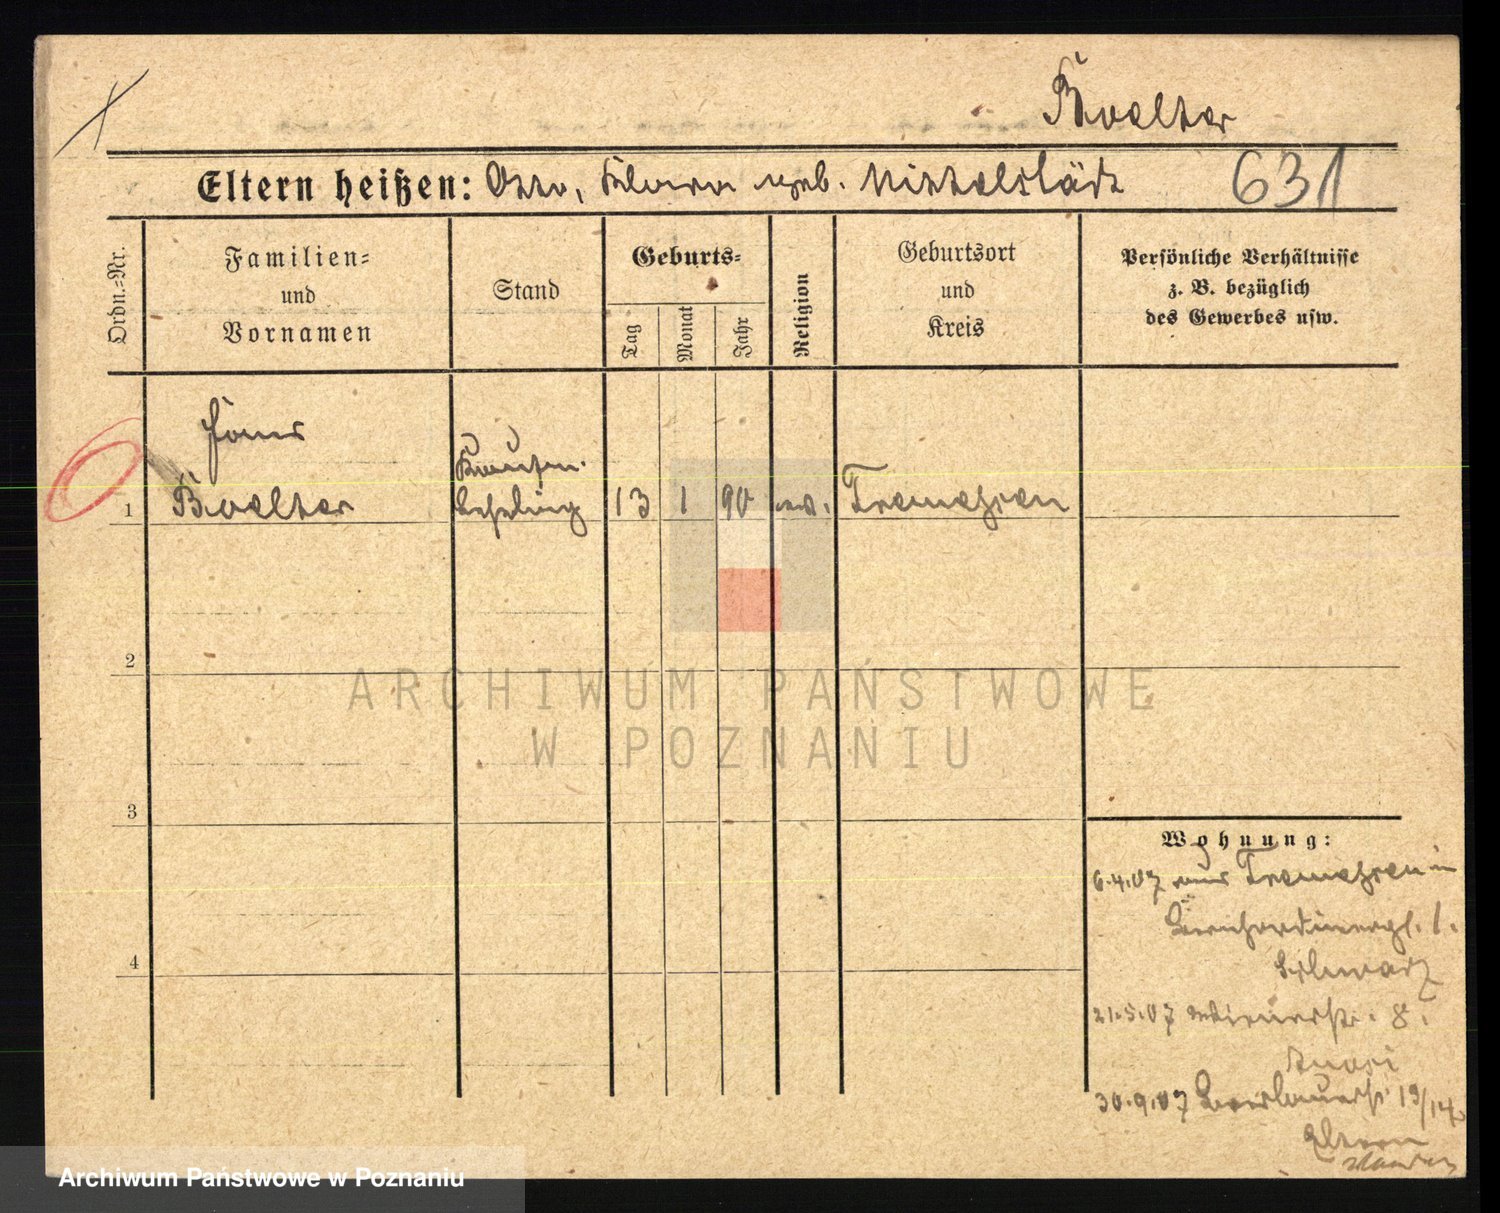 Boelter
Eltern heißen: Otto, geb. Mittelstädt 631
Ordn.=Nr.
Familien=
und
Vornamen
Stand
Geburts=
Tag
Monat
Jahr
Religion
Geburtsort
und
Kreis
Persönliche Verhältnisse
z. B. bezüglich
des Gewerbes usw.
1
Boelter
lehrling
13 1 90 Tremessen
2
3
4
Wohnung:
6.4.07 aus Tremessen in
Bernhardinerpl. 1.
Schwarz
21.5.07 8.
30.9.07 Breslauerstr 13/14
Eltern
ARCHIWUM PAŃSTWOWE
W POZNANIU
Archiwum Państwowe w Poznaniu